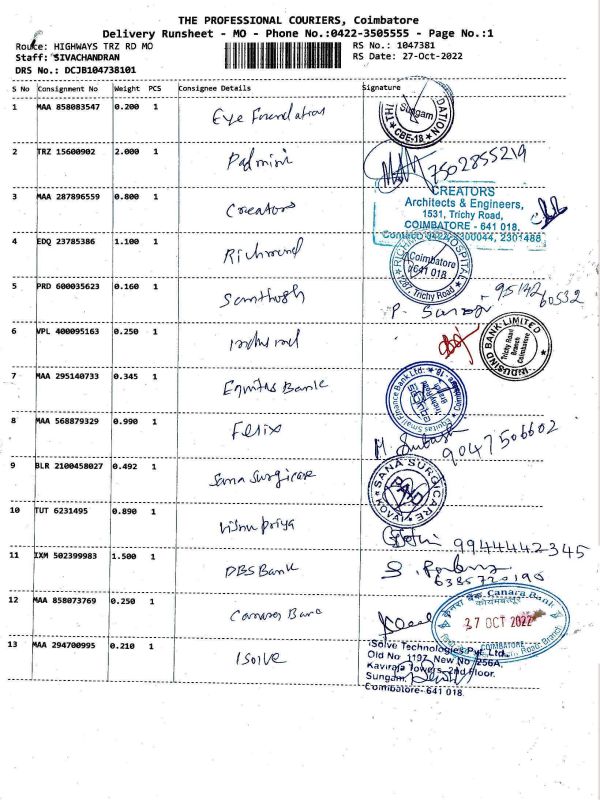 THE PROFESSIONAL COURIERS, Coimbatore
Delivery Runsheet - MO - Phone No.:0422-3505555 - Page No.:1
Route: HIGHWAYS TRZ RD MO RS No.: 1047381
Staff: SIVACHANDRAN RS Date: 27-Oct-2022
DRS No.: DCJB104738101
S No Consignment No Weight PCS Consignee Details Signature
1 MAA 858083547 0.200 1 Eye Foundation
Sungam
CBE-18
2 TRZ 15600902 2.000 1 Padmini 7502855219
3 MAA 287896559 0.800 1 Creators
CREATORS
Architects & Engineers,
1531, Trichy Road,
COIMBATORE - 641 018.
4 EDQ 23785386 1.100 1 Richmond
Coimbatore
641 018.
1287, Trichy Road
5 PRD 600035623 0.160 1 Santhosh
6 VPL 400095163 0.250 1
INDUSIND BANK LIMITED
Trichy Road
Branch
Coimbatore
7 MAA 295140733 0.345 1 Equitas Bank
Equitas Small Finance Bank Ltd.
8 MAA 568879329 0.990 1 Felix 9047506602
9 BLR 2100458027 0.492 1 Sana Surgicare
SANA SURGICARE
PAID
KOVAI
10 TUT 6231495 0.890 1 Vishnu Priya 9944442345
11 IXM 502399983 1.500 1 DBS Bank
6385720190
12 MAA 858073769 0.250 1
केनरा बैंक Canara Bank
27 OCT 2022
COIMBATORE
13 MAA 294700995 0.210 1 Isolve
iSolve Technologies Pvt. Ltd.,
Old No. 1197, New No. 256A,
Kaviraja Towers, 2nd Floor.
Sungam,
Coimbatore- 641 018.